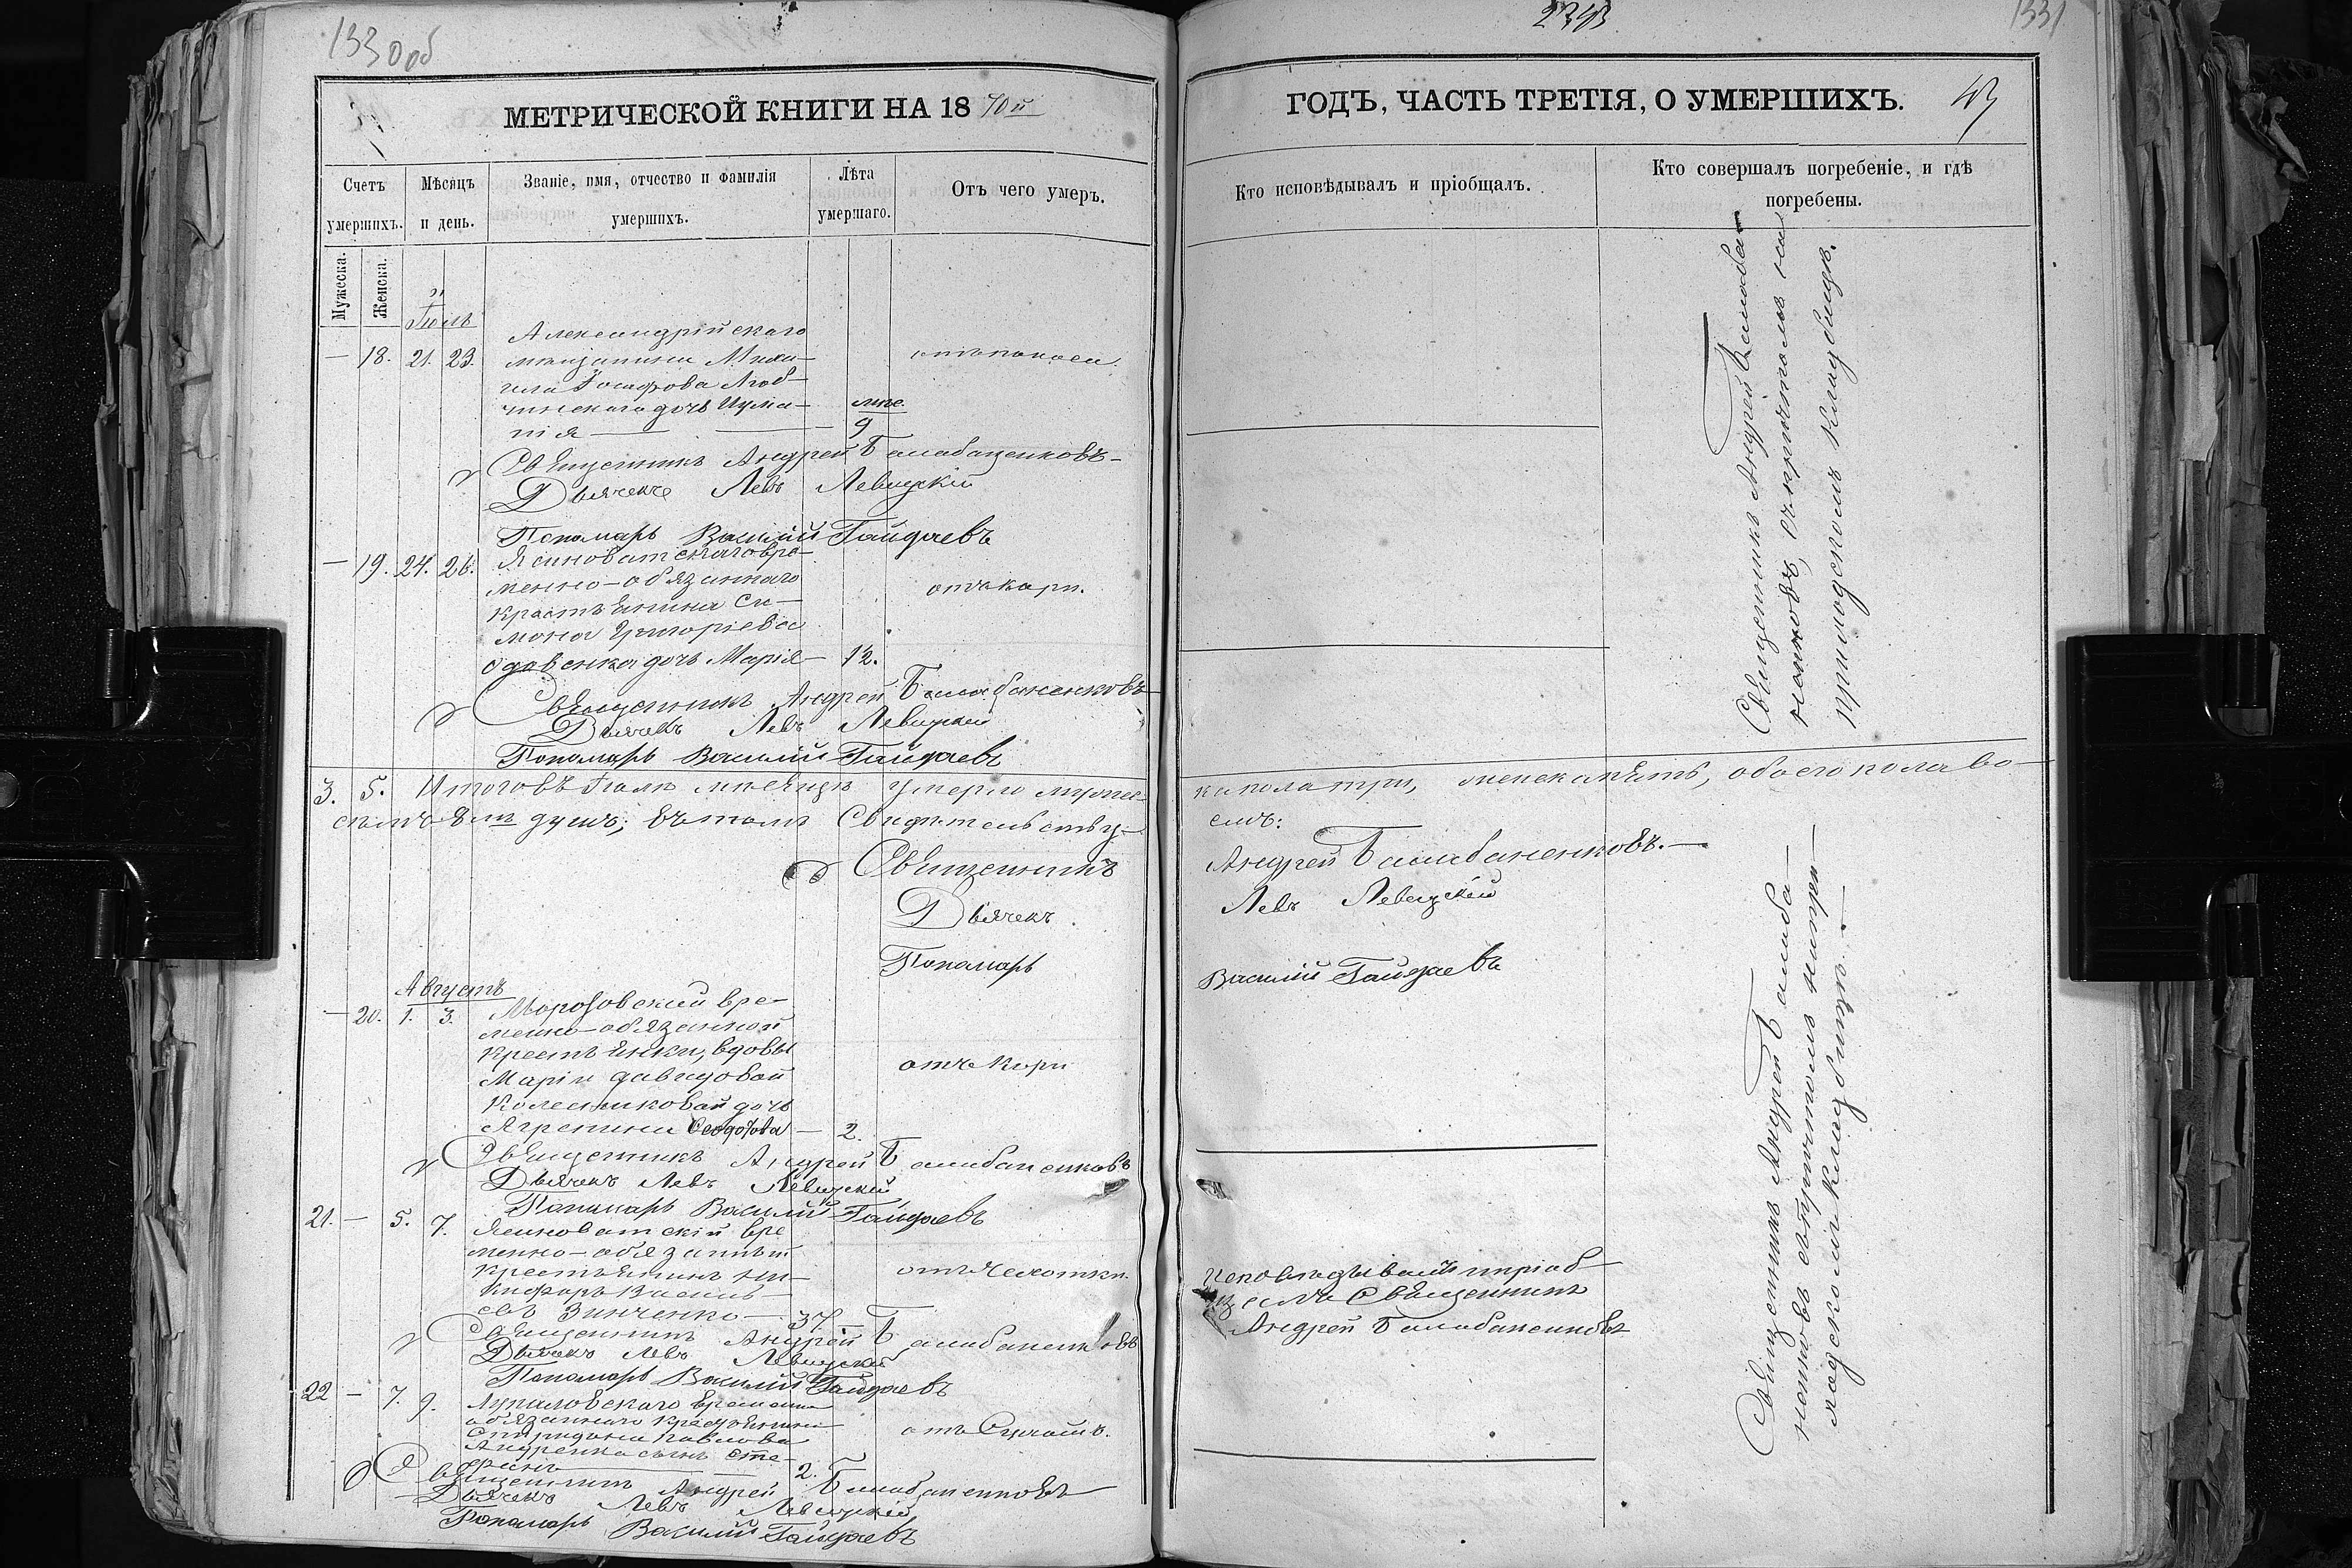 133 об
МЕТРИЧЕСКОЙ КНИГИ НА 1870й
Счетъ умершихъ.
Мѣсяцъ и день.
Званіе, имя, отчество и фамилія умершихъ.
Лѣта умершаго.
Отъ чего умеръ.
Мужеска.
Женска.
Іюль
Александрійскаго
— 18. 21. 23. мѣщанина Миха-
ила Іосифова Люб-
чинскаго дочь
нія — 9
Священникъ Андрей Балабаненковъ
Дьячекъ Левъ Левицкій
Пономарь Василій Гайдаевъ
— 19. 24. 26. Ясиноватскаго вре-
менно-обязаннаго
крестьянина Си-
мона Григоріева
дочь Марія — 12. отъ кори.
Священникъ Андрей Балабаненковъ
Дьячекъ Левъ Левицкій
Пономарь Василій Гайдаевъ
3. 5. Итого въ Іюлѣ мѣсяцѣ умерло мужес-
8мь душъ; въ томъ Свидѣтельству-
Священникъ
Дьячекъ
Пономарь
Августъ
— 20. 1. 3. Морозовской вре-
менно-обязанной
крестьянки, вдовы
Маріи Давидовой
Колесниковой дочь
Агрепина Ѳеодотова — 2. отъ кори
Священникъ Андрей Балабаненковъ
Дьячекъ Левъ Левицкій
Пономарь Василій Гайдаевъ
21. — 5. 7. Ясиноватскій вре
менно-обязанный
крестьянинъ Ни-
кифоръ Василь-
евъ Зинченко — 37. отъ чахотки.
Священникъ Андрей Балабаненковъ
Дьячекъ Левъ Левицкій
Пономарь Василій Гайдаевъ
22 — 7. 9. временно
обязаннаго крестьянина
Спиридона Павлова
Андренка сынъ Сте-
фанъ — 2.
Священникъ Андрей Балабаненковъ
Дьячекъ Левъ Левицкій
Пономарь Василій Гайдаевъ
1331
ГОДЪ, ЧАСТЬ ТРЕТІЯ, О УМЕРШИХЪ.
Кто исповѣдывалъ и пріобщалъ.
Кто совершалъ погребеніе, и гдѣ погребены.
Священникъ Андрей Балаба-
ненковъ, съ причтомъ на
приходскомъ кладбищѣ.
ка пола три, женска пять, обоего пола во-
семь:
Андрей Балабаненковъ. —
Левъ Левицкій
Василій Гайдаевъ
Исповѣдывалъ и пріоб-
щалъ Священникъ
Андрей Балабаненковъ
Священникъ Андрей Балаба-
ненковъ съ причтомъ на при-
ходскомъ кладбищѣ. —